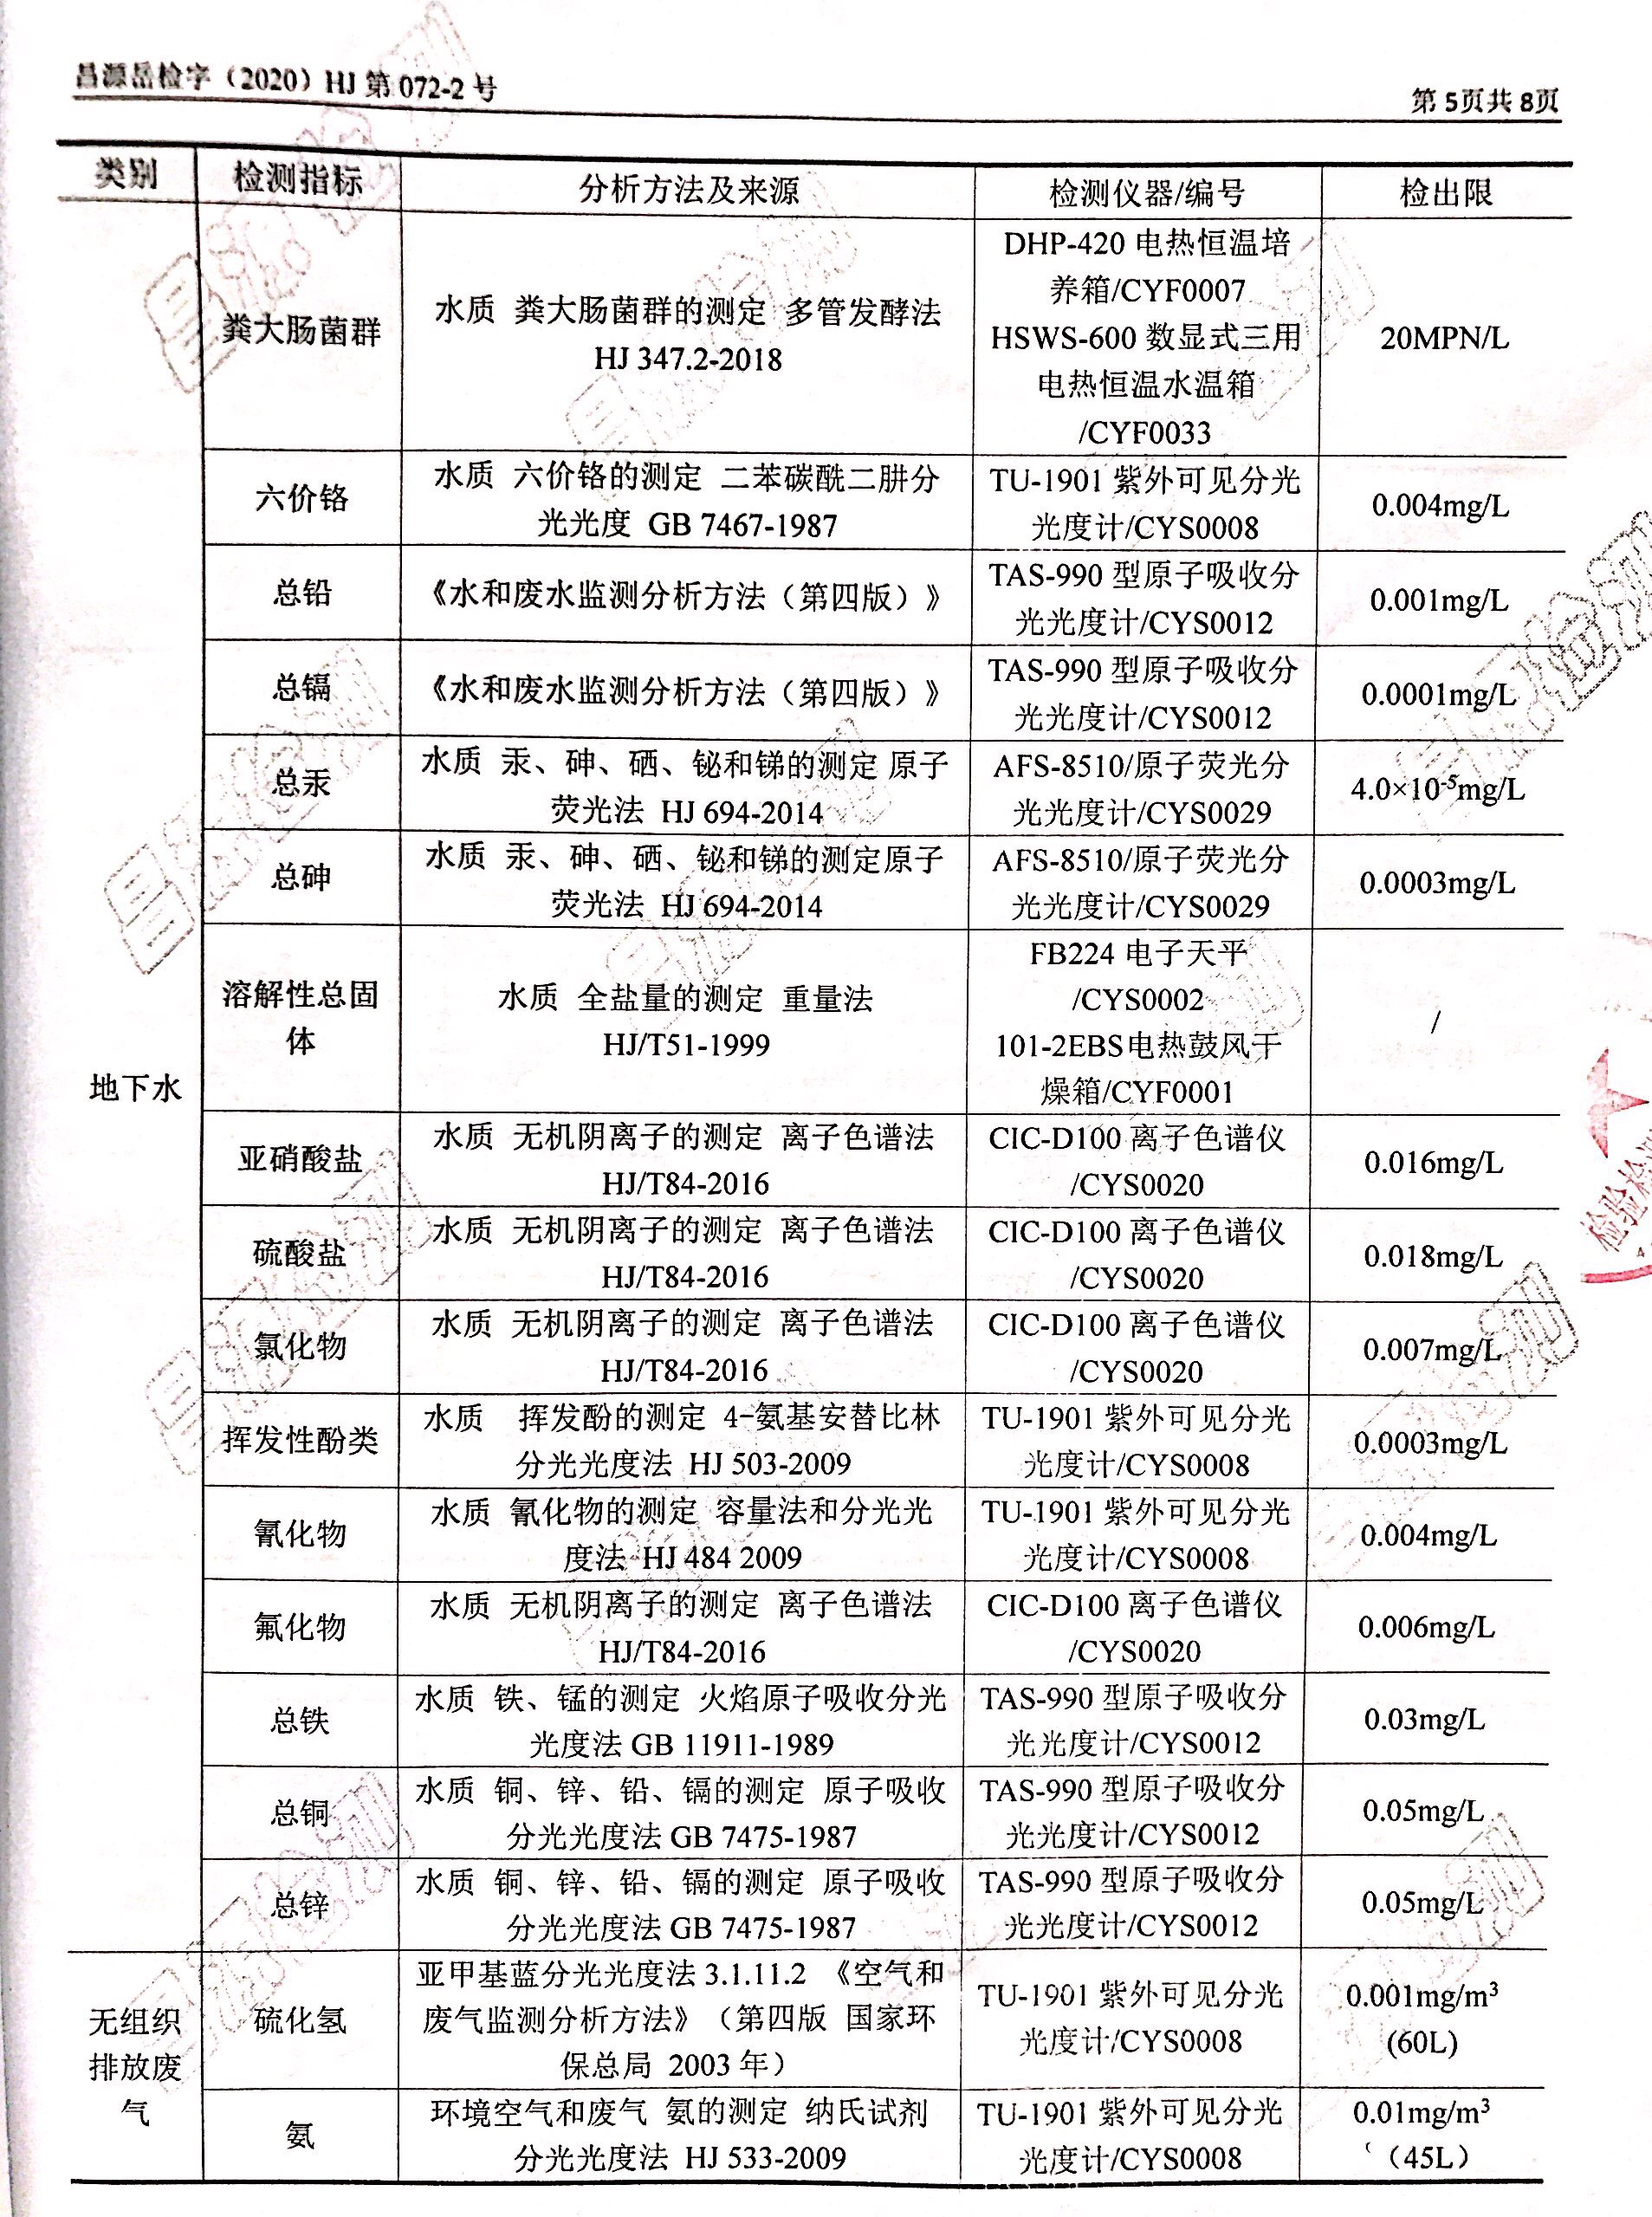 昌源岳检字（2020）HJ 第 072-2 号
第 5页共 8页
类别 检测指标 分析方法及来源 检测仪器/编号 检出限
地下水
粪大肠菌群
水质 粪大肠菌群的测定 多管发酵法
HJ 347.2-2018
DHP-420 电热恒温培
养箱/CYF0007
HSWS-600 数显式三用
电热恒温水温箱
/CYF0033
20MPN/L
六价铬
水质 六价铬的测定 二苯碳酰二肼分
光光度 GB 7467-1987
TU-1901 紫外可见分光
光度计/CYS0008
0.004mg/L
总铅
《水和废水监测分析方法（第四版）》
TAS-990 型原子吸收分
光光度计/CYS0012
0.001mg/L
总镉
《水和废水监测分析方法（第四版）》
TAS-990 型原子吸收分
光光度计/CYS0012
0.0001mg/L
总汞
水质 汞、砷、硒、铋和锑的测定 原子
荧光法 HJ 694-2014
AFS-8510/原子荧光分
光光度计/CYS0029
4.0×10⁻⁵mg/L
总砷
水质 汞、砷、硒、铋和锑的测定原子
荧光法 HJ 694-2014
AFS-8510/原子荧光分
光光度计/CYS0029
0.0003mg/L
溶解性总固
体
水质 全盐量的测定 重量法
HJ/T51-1999
FB224 电子天平
/CYS0002
101-2EBS电热鼓风干
燥箱/CYF0001
/
亚硝酸盐
水质 无机阴离子的测定 离子色谱法
HJ/T84-2016
CIC-D100 离子色谱仪
/CYS0020
0.016mg/L
硫酸盐
水质 无机阴离子的测定 离子色谱法
HJ/T84-2016
CIC-D100 离子色谱仪
/CYS0020
0.018mg/L
氯化物
水质 无机阴离子的测定 离子色谱法
HJ/T84-2016
CIC-D100 离子色谱仪
/CYS0020
0.007mg/L
挥发性酚类
水质 挥发酚的测定 4-氨基安替比林
分光光度法 HJ 503-2009
TU-1901 紫外可见分光
光度计/CYS0008
0.0003mg/L
氰化物
水质 氰化物的测定 容量法和分光光
度法 HJ 484 2009
TU-1901 紫外可见分光
光度计/CYS0008
0.004mg/L
氟化物
水质 无机阴离子的测定 离子色谱法
HJ/T84-2016
CIC-D100 离子色谱仪
/CYS0020
0.006mg/L
总铁
水质 铁、锰的测定 火焰原子吸收分光
光度法 GB 11911-1989
TAS-990 型原子吸收分
光光度计/CYS0012
0.03mg/L
总铜
水质 铜、锌、铅、镉的测定 原子吸收
分光光度法 GB 7475-1987
TAS-990 型原子吸收分
光光度计/CYS0012
0.05mg/L
总锌
水质 铜、锌、铅、镉的测定 原子吸收
分光光度法 GB 7475-1987
TAS-990 型原子吸收分
光光度计/CYS0012
0.05mg/L
无组织
排放废
气
硫化氢
亚甲基蓝分光光度法 3.1.11.2 《空气和
废气监测分析方法》（第四版 国家环
保总局 2003 年）
TU-1901 紫外可见分光
光度计/CYS0008
0.001mg/m³
(60L)
氨
环境空气和废气 氨的测定 纳氏试剂
分光光度法 HJ 533-2009
TU-1901 紫外可见分光
光度计/CYS0008
0.01mg/m³
（45L）
昌源检测
检验检